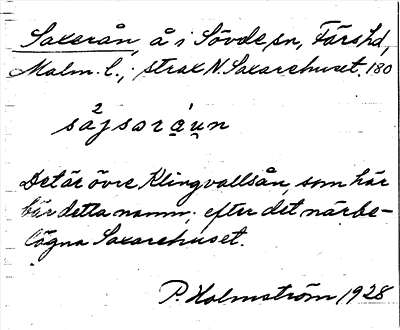 Saxerån, å i Sövde sn, Färs hd,
Malm. l.; strax N. Saxarehuset. 180
Det är övre Klingvallsån, som här
bär detta namn; efter det närbe-
lägna Saxarehuset.
P. Holmström 1928